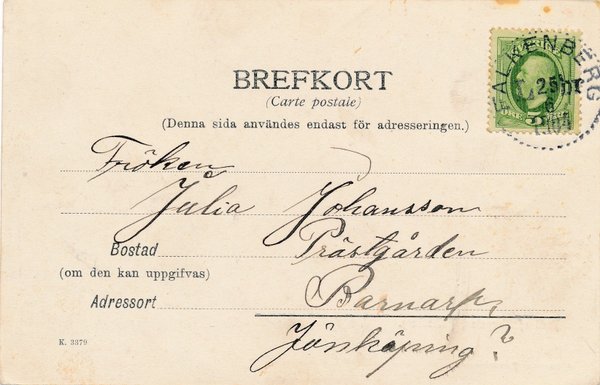 BREFKORT
(Carte postale)
(Denna sida användes endast för adresseringen.)
FALKENBERG
25
ÖRE 5
Fröken
Julia Johansson
Bostad Prästgården
(om den kan uppgifvas)
Adressort Barnarp,
Jönköping?
K. 3379